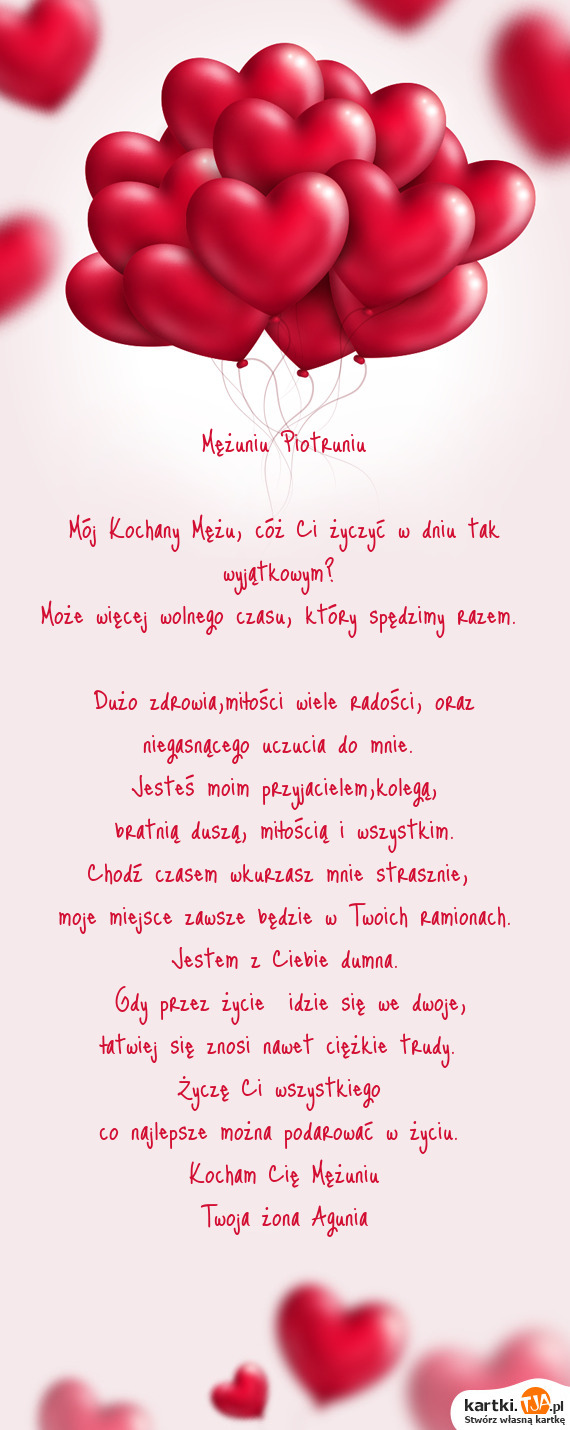 Mężuniu Piotruniu
Mój Kochany Mężu, cóż Ci życzyć w dniu tak
wyjątkowym?
Może więcej wolnego czasu, który spędzimy razem.
Dużo zdrowia,miłości wiele radości, oraz
niegasnącego uczucia do mnie.
Jesteś moim przyjacielem,kolegą,
bratnią duszą, miłością i wszystkim.
Chodź czasem wkurzasz mnie strasznie,
moje miejsce zawsze będzie w Twoich ramionach.
Jestem z Ciebie dumna.
Gdy przez życie idzie się we dwoje,
łatwiej się znosi nawet ciężkie trudy.
Życzę Ci wszystkiego
co najlepsze można podarować w życiu.
Kocham Cię Mężuniu
Twoja żona Agunia
kartki.TJA.pl
Stwórz własną kartkę